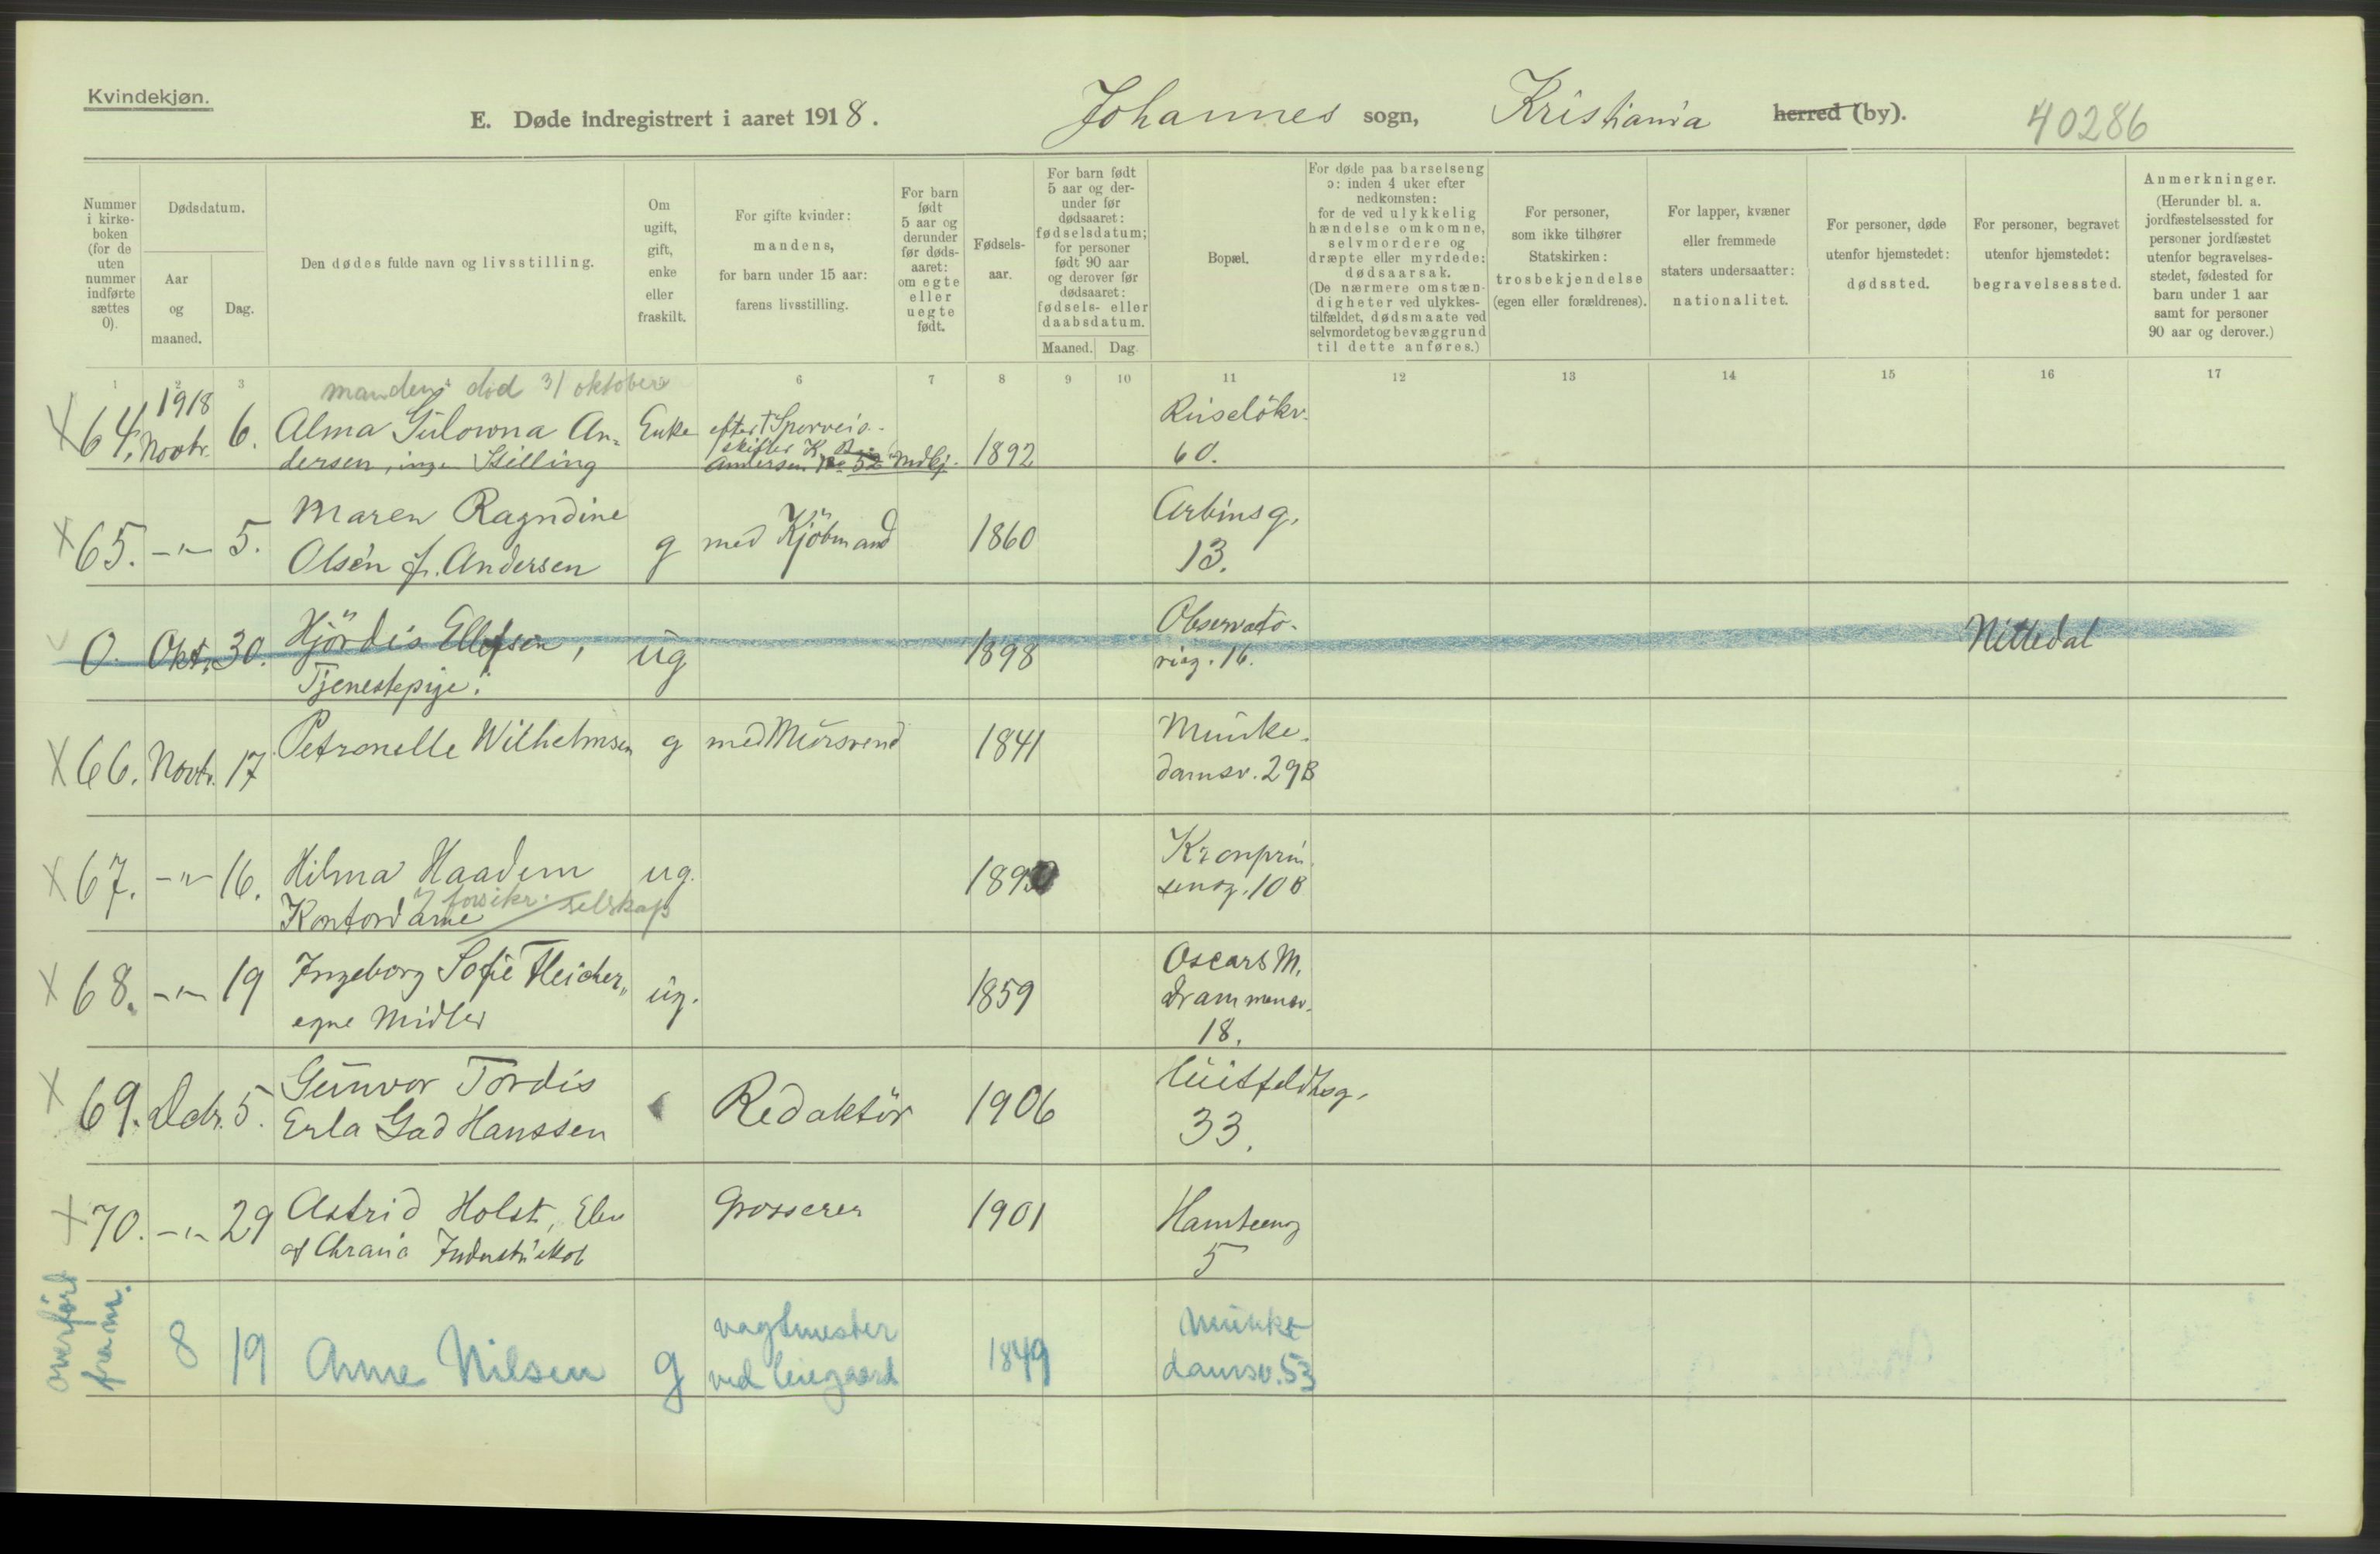 Kvindekjøn.
E. Døde indregistrert i aaret 1918. Johannes sogn, Kristiania herred (by). 40286
Nummer i kirke-boken (for de uten nummer indførte sættes 0).
Dødsdatum.
Aar og maaned.
Dag.
Den dødes fulde navn og livsstilling.
Om ugift, gift, enke eller fraskilt.
For gifte kvinder: mandens, for barn under 15 aar: farens livsstilling.
For barn født 5 aar og derunder før døds-aaret: om egte eller uegte født.
Fødsels-aar.
For barn født 5 aar og der-under før dødsaaret: fødselsdatum; for personer født 90 aar og derover før dødsaaret: fødsels- eller daabsdatum.
Maaned. Dag.
Bopæl.
For døde paa barselseng ɔ: inden 4 uker efter nedkomsten: for de ved ulykkelig hændelse omkomne, selvmordere og dræpte eller myrdede: dødsaarsak. (De nærmere omstæn-digheter ved ulykkes-tilfældet, dødsmaate ved selvmordet og bevæggrund til dette anføres.)
For personer, som ikke tilhører Statskirken: trosbekjendelse (egen eller forældrenes).
For lapper, kvæner eller fremmede staters undersaatter: nationalitet.
For personer, døde utenfor hjemstedet: dødssted.
For personer, begravet utenfor hjemstedet: begravelsessted.
Anmerkninger. (Herunder bl. a. jordfæstelsessted for personer jordfæstet utenfor begravelses-stedet, fødested for barn under 1 aar samt for personer 90 aar og derover.)
1 2 3 6 7 8 9 10 11 12 13 14 15 16 17
mandens død 31 oktober
X 64. 1918 Novbr. 6. Alma Gulowna An-
dersen, ingen Stilling Enke efter † Sporveis-
skifter K.
Andersen 1892 Ruseløkv.
60.
X 65. -"- 5. Maren Ragndine
Olsen f. Andersen g med Kjöbmand 1860 Arbinsg.
13.
0. Okt. 30. Hjördis Ellefsen,
Tjenestepige. ug 1898 Observato-
rieg. 16. Nittedal
X 66. Novbr. 17 Petronelle Wilhelmsen g med Mursvend 1841 Munke-
damsv. 29B
X 67. -"- 16. Hilma Haadem
Kontordame i forsikr. selskap ug. Kronprin
sensg. 10B
X 68. -"- 19 Ingeborg Sofie Fleicher,
egne Midler ug. 1859 Oscars M.
Drammensv.
18.
X 69. Dcbr. 5. Gunvor Tordis
Erla Gad Hanssen Redaktör 1906 Huitfeldtsg.
33.
X 70. -"- 29 Astrid Holst, Elev
af Chrania Industriskol Grosserer 1901
5
overført
fra m. 8 19 Anne Nilsen g vagtmester
ved 1849 Munke
damsv. 53